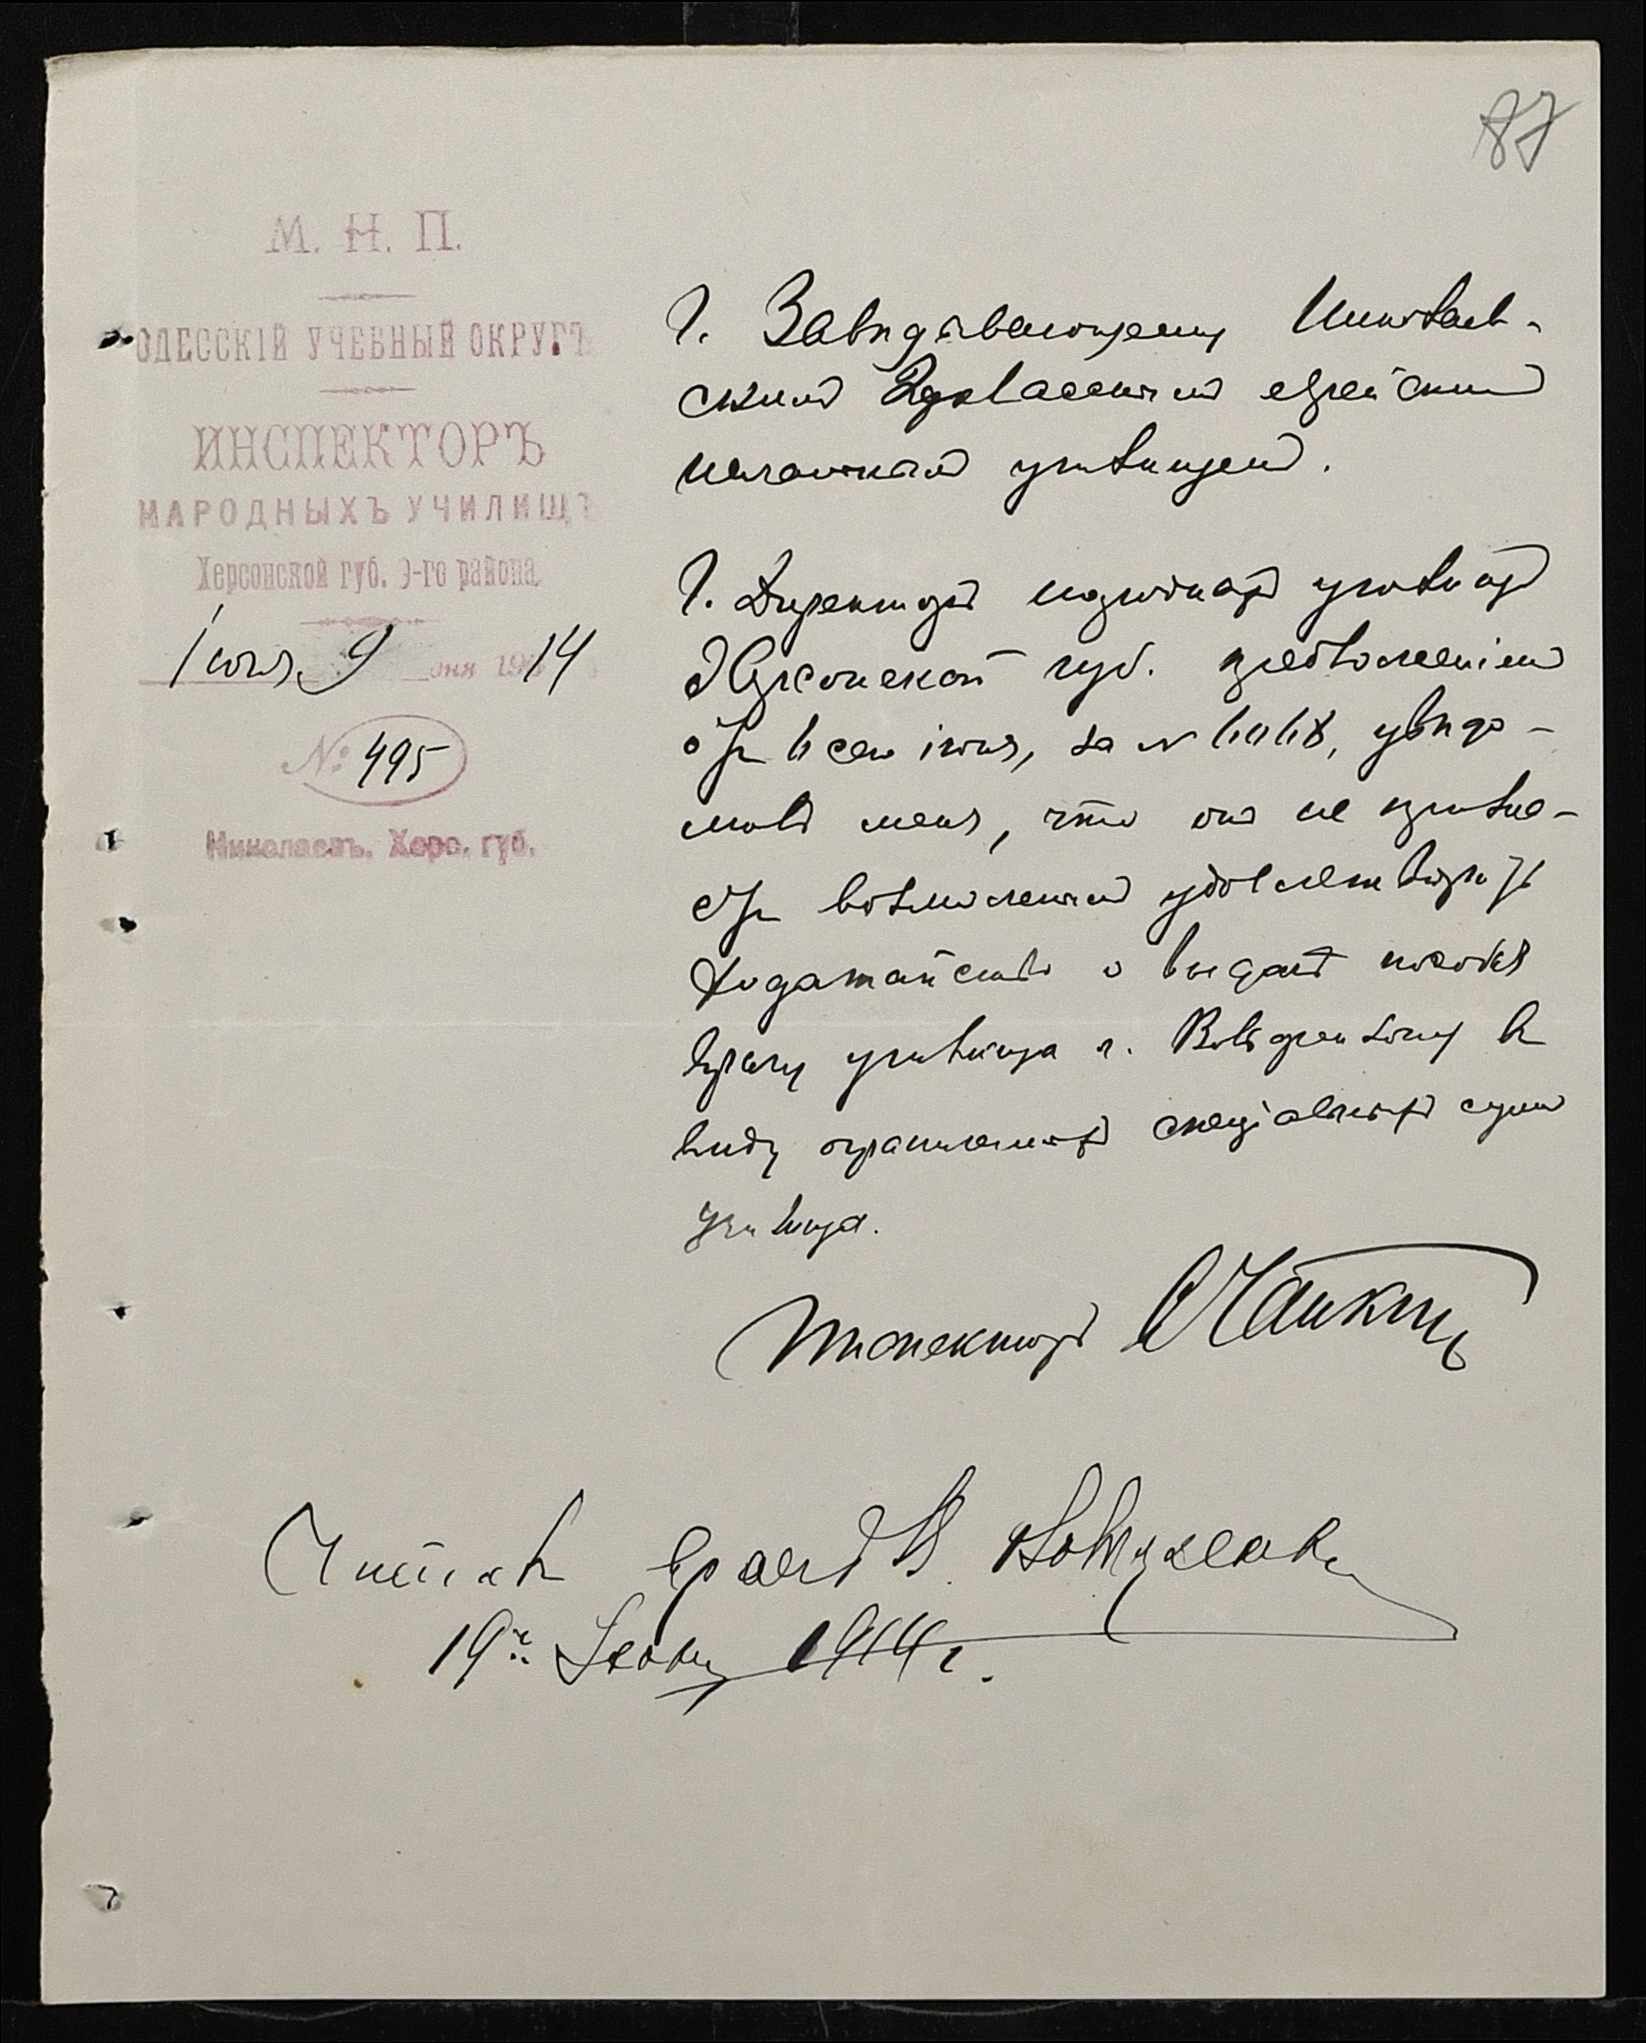 87
М. Н. П.
ОДЕССКІЙ УЧЕБНЫЙ ОКРУГЪ
ИНСПЕКТОРЪ
НАРОДНЫХЪ УЧИЛИЩЪ
Херсонской губ. 3-го района
Іюня 9 дня 1914
№ 495
Николаевъ, Херс. губ.
Г. Завѣдывающему Николаев-
скимъ 2хклассным еврейскимъ
начальнымъ училищемъ.
Г. Директоръ народныхъ училищъ
Херсонской губ. предложеніемъ
отъ 6 сего іюня, за №, увѣдо-
милъ меня, что онъ не признае-
тъ возможнымъ удовлетворить
ходатайство о выдачѣ пособія
врачу училища г. въ
виду ограниченныхъ спеціальныхъ суммъ
училища.
Инспекторъ
Читалъ врачъ
19го Іюня 1914 г.